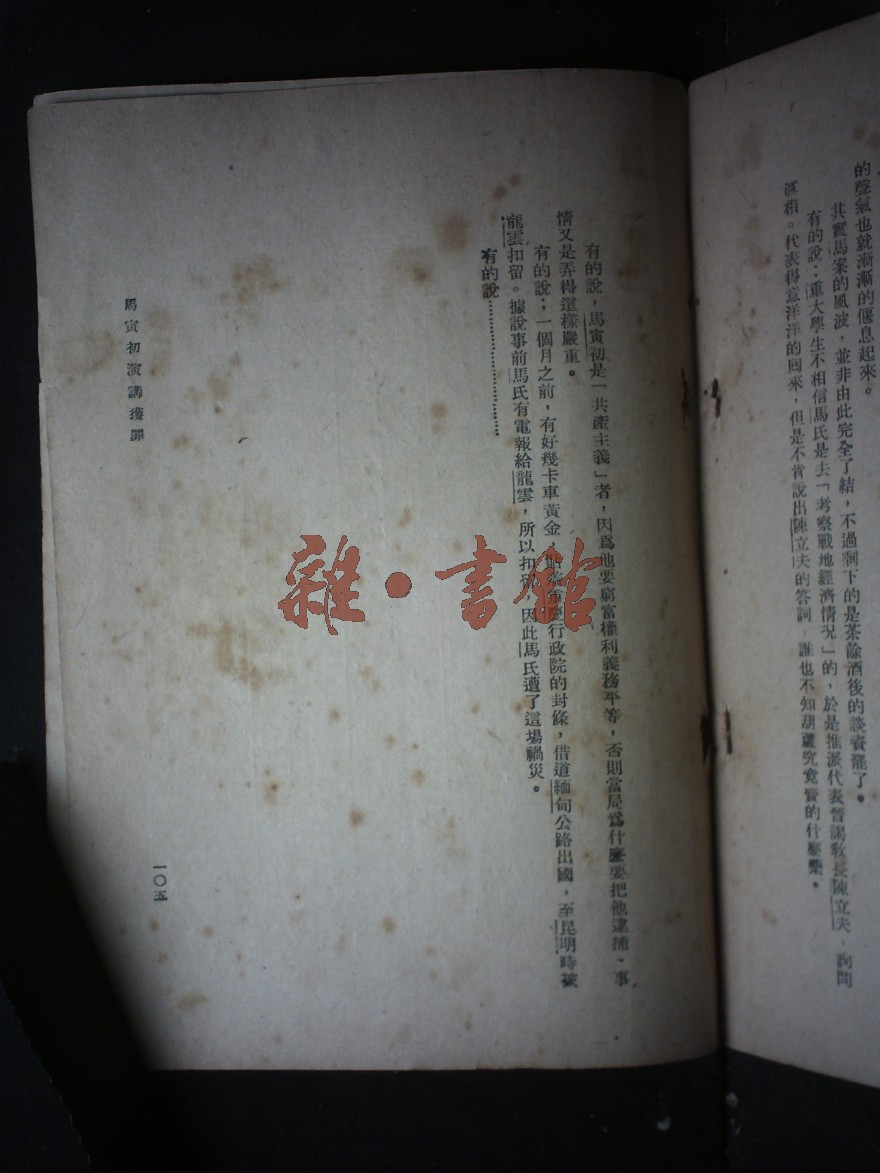 的聲氣也就漸漸的偃息起來。
其實馬案的風波，並非由此完全了結，不過剩下的是茶餘酒後的談資罷了。
有的說：重大學生不相信馬氏是去「考察戰地經濟情況」的，於是推派代表晉謁教長陳立夫，詢問
眞相。代表得意洋洋的回來，但是不肯說出陳立夫的答詞，誰也不知葫蘆究竟賣的什麼藥。
有的說，馬寅初是「共產主義」者，因爲他要窮富權利義務平等，否則當局爲什麼要把他逮捕，事
情又是弄得這樣嚴重。
有的說；一個月之前，有好幾卡車黃金，貼蓋重慶行政院的封條，借道緬甸公路出國，至昆明時被
龍雲扣留。據說事前馬氏有電報給龍雲，所以扣留，因此馬氏遭了這場禍災。
有的說…………………
馬寅初演講獲罪
一〇五
雜·書館